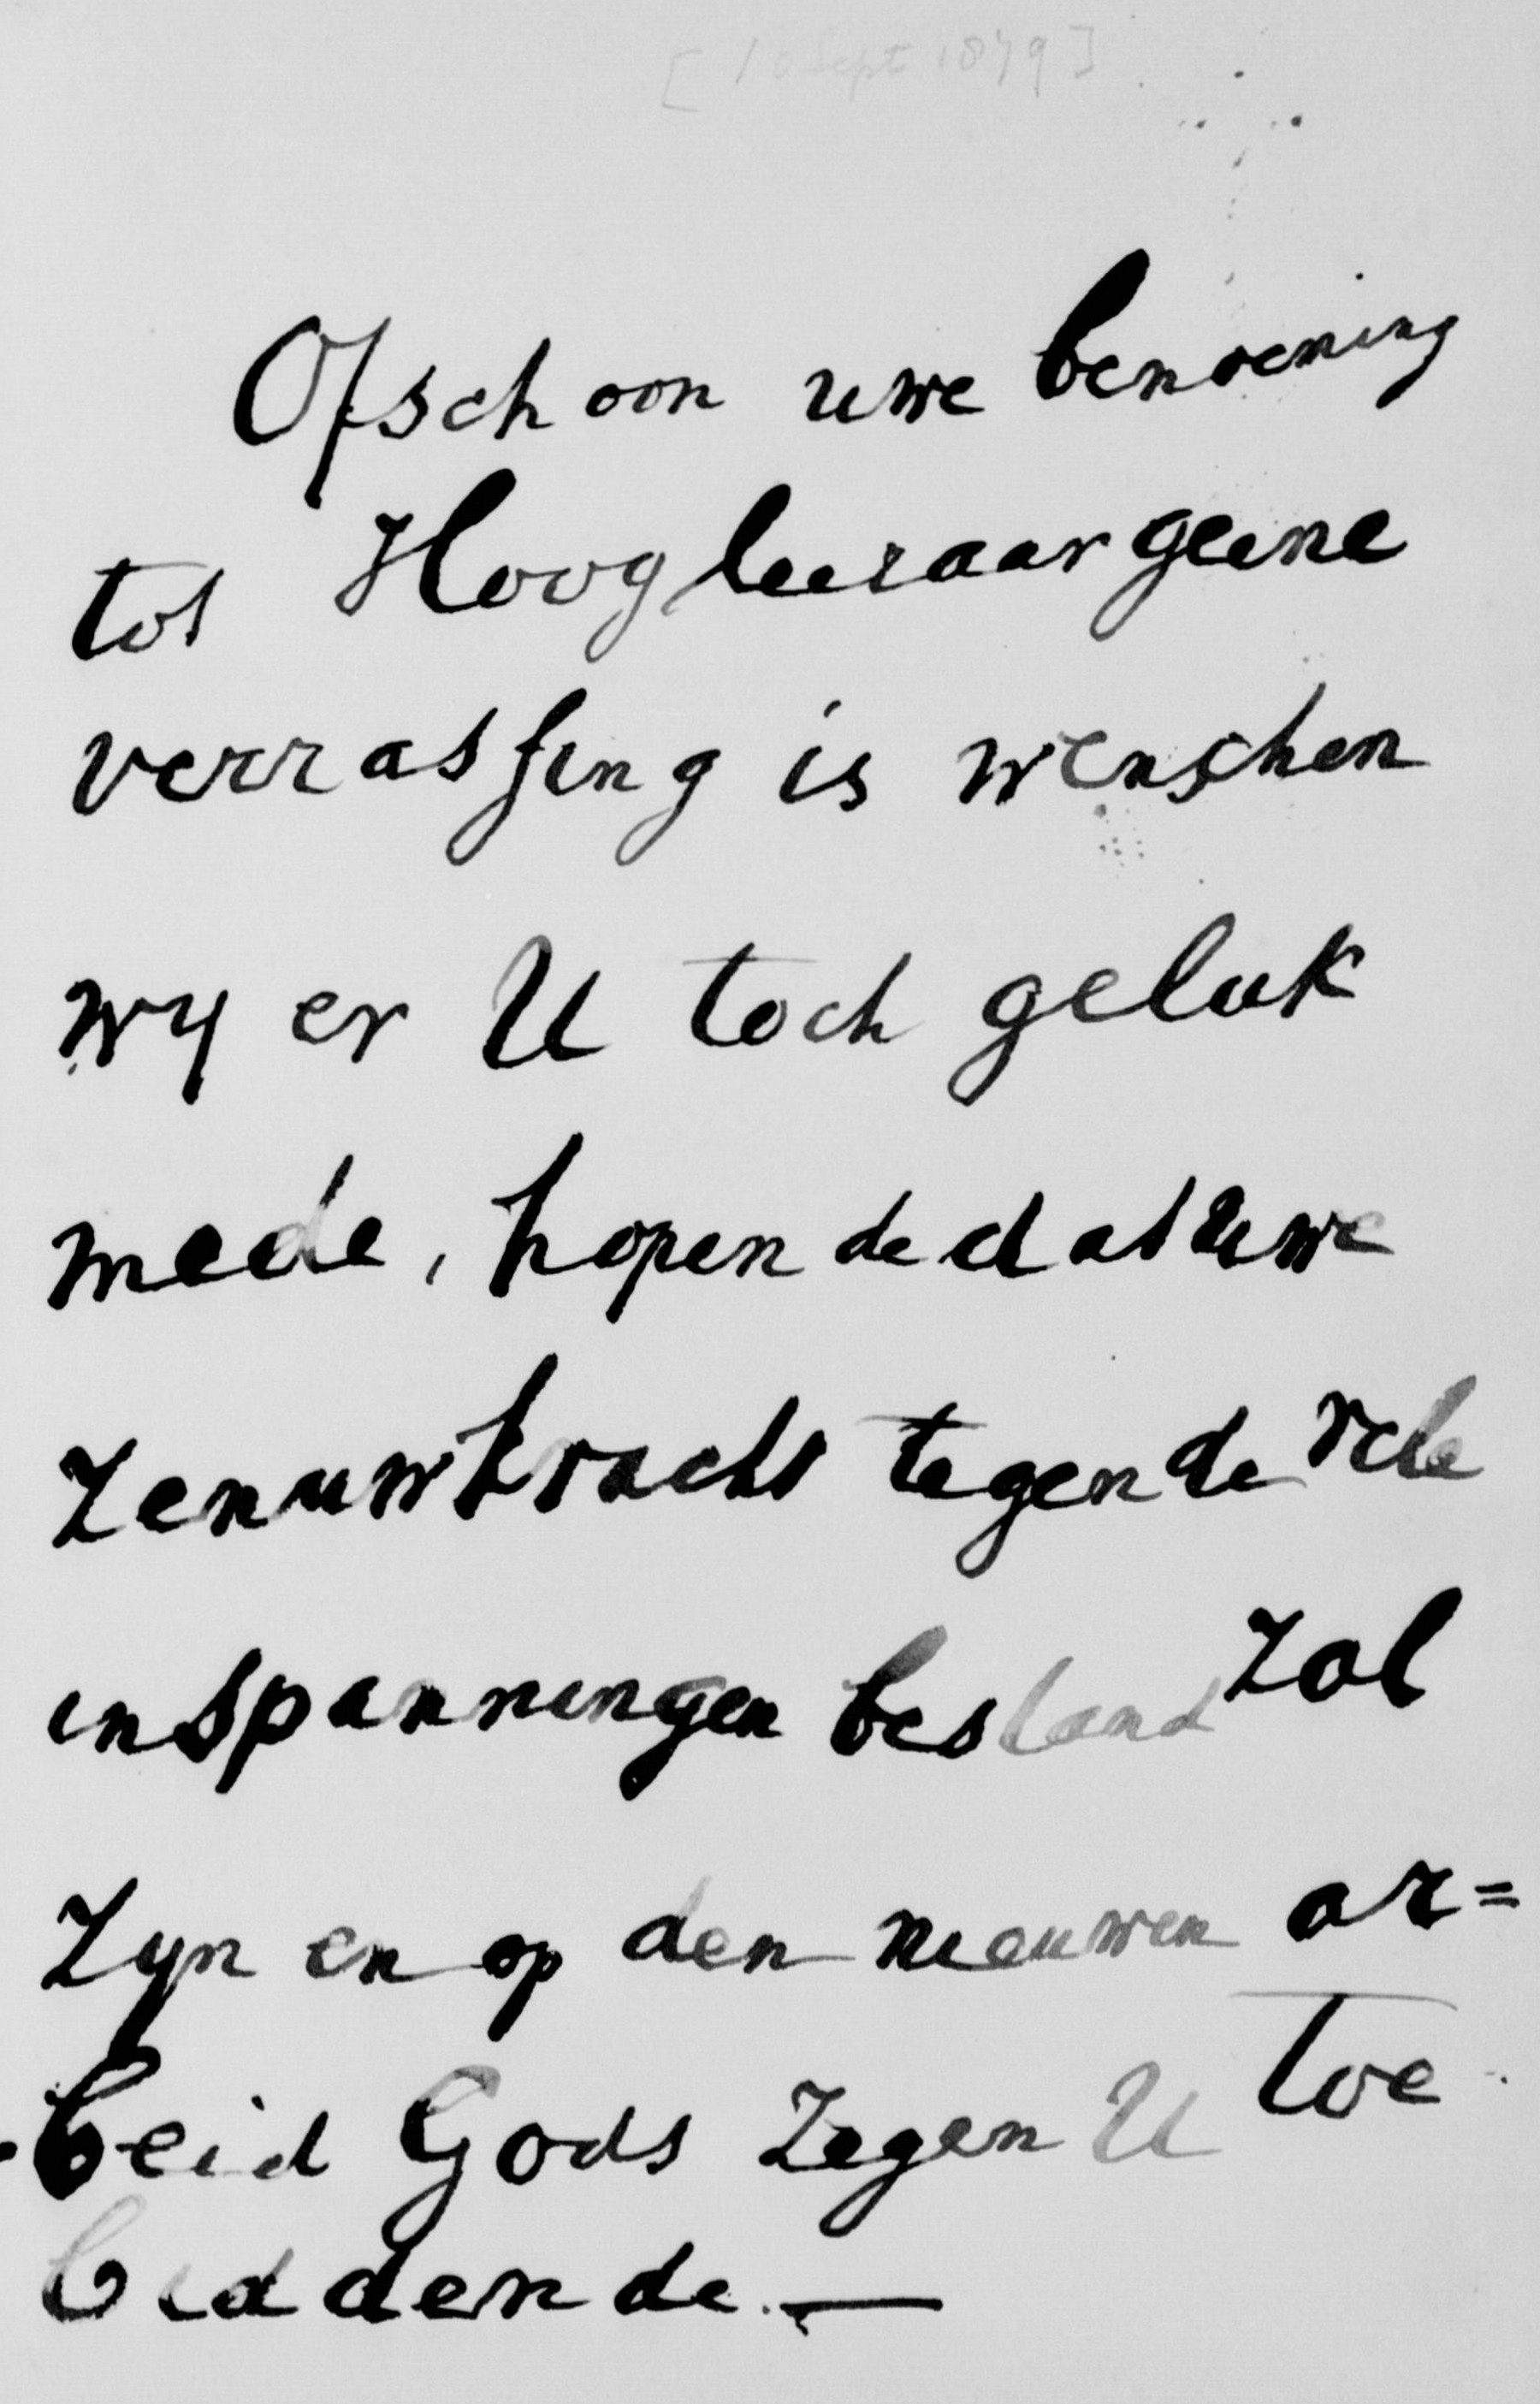 [10 Sept 1879]
Ofschoon uwe benoeming
tot Hoogleeraar geene
verrassing is wenschen
wy er U toch geluk
mede, hopende dat uwe
Zenuwkracht tegen de vele
inspanningen bestand zal
Zyn en op den nieuwen ar=
beid Gods Zegen U toe
biddende. —